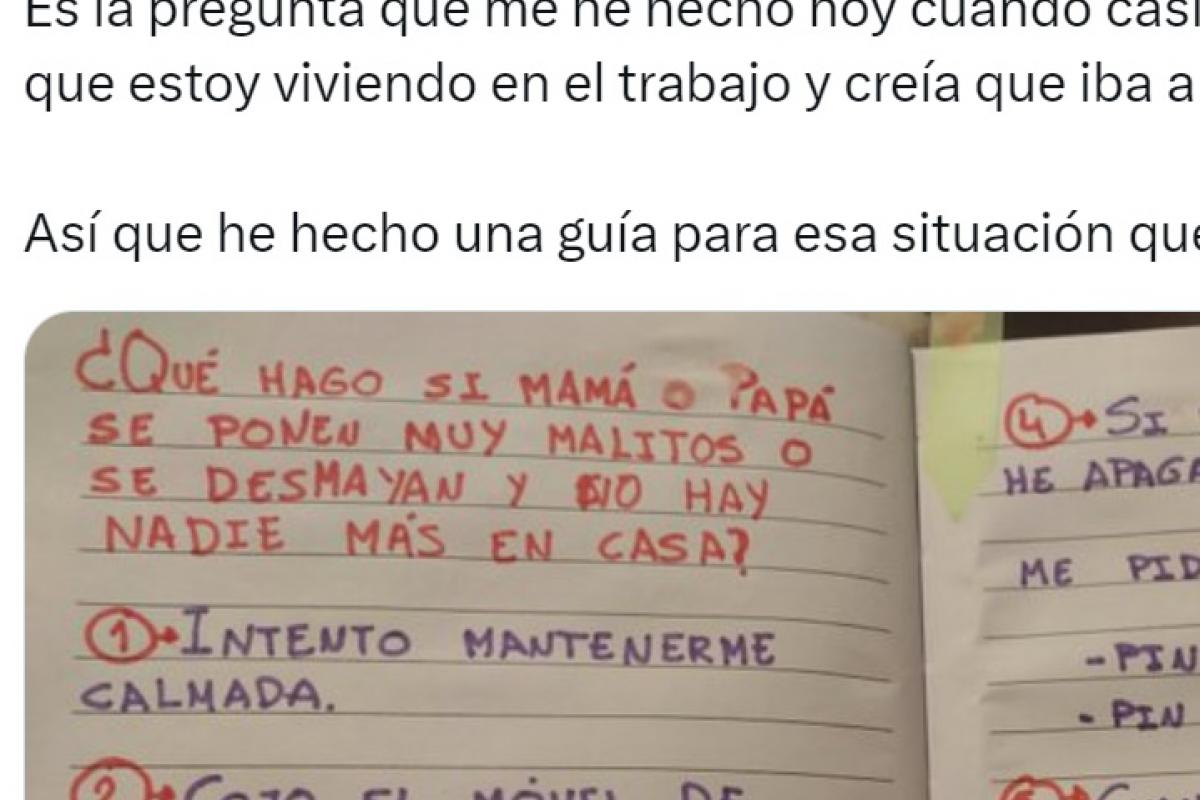 Es la pregunta que me he hecho hoy cuando casi
que estoy viviendo en el trabajo y creía que iba a
Así que he hecho una guía para esa situación que
¿QUÉ HAGO SI MAMÁ O PAPÁ
SE PONEN MUY MALITOS O
SE DESMAYAN Y NO HAY
NADIE MÁS EN CASA?
1 INTENTO MANTENERME
CALMADA.
2 COJO EL MÓVIL DE
4 SI
HE APAGA
ME PID
- PIN
- PIN